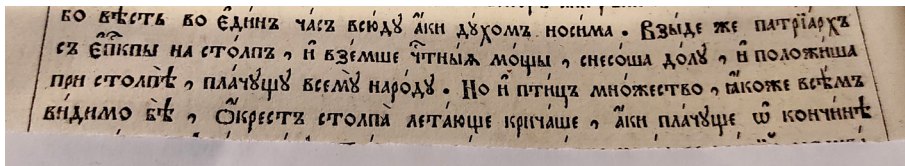 бо вѣсть во є҆ди́нъ ча́съ всю́дꙋ а҆́ки дꙋ́хомъ носи́ма. Взы́де же патрїа́рхъ
съ є҆пⷭ҇кпы на сто́лпъ, и҆ взе́мше чⷭ҇тны́ѧ мо́щы, снесо́ша до́лꙋ, и҆ положи́ша
при столпѣ̀, пла́чꙋщꙋ всемꙋ̀ наро́дꙋ. Но и҆ пти́цъ мно́жество, ꙗ҆́коже всѣ̑мъ
ви́димо бѣ̀, ѡ҆́крестъ столпа̀ лета́юще крича́ше, а҆́ки пла́чꙋще ѡ҆ кончи́нѣ